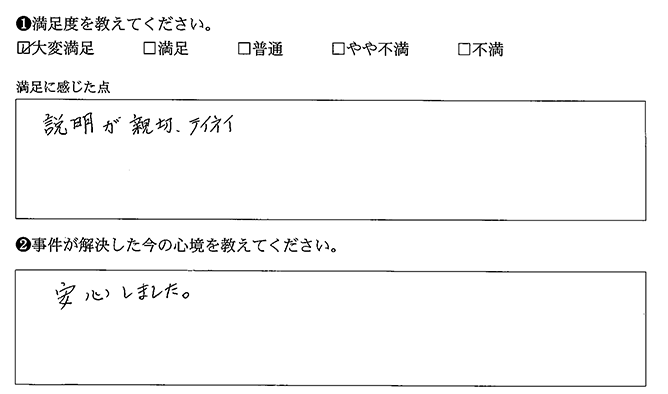 ❶満足度を教えてください。
☑大変満足 □満足 □普通 □やや不満 □不満
満足に感じた点
説明が親切、テイネイ
❷事件が解決した今の心境を教えてください。
安心しました。